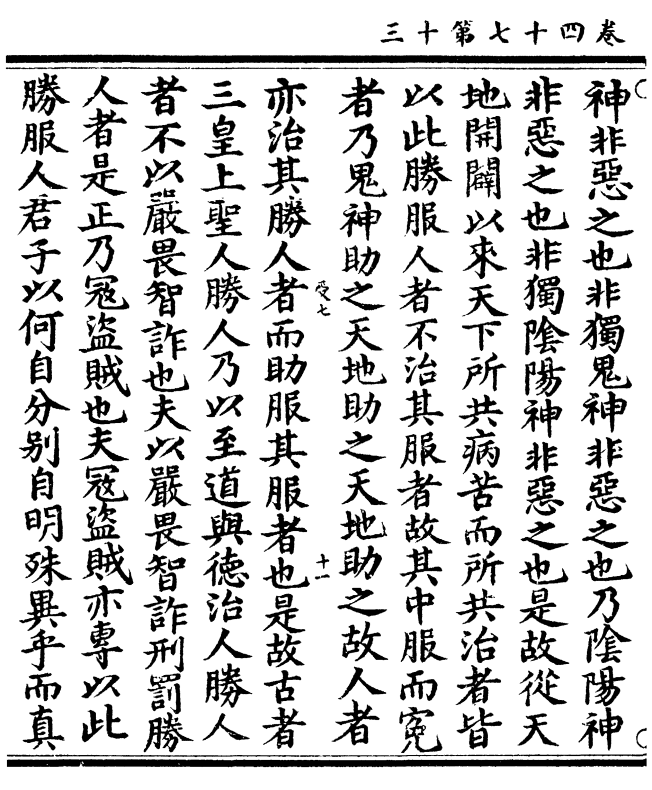 卷四十七第十三
神非惡之也非獨鬼神非惡之也乃陰陽神
非惡之也非獨陰陽神非惡之也是故從天
地開闢以來天下所共病苦而所共治者皆
以此勝服人者不治其服者故其中服而冤
者乃鬼神助之天地助之天地助之故人者
受七 十一
亦治其勝人者而助服其服者也是故古者
三皇上聖人勝人乃以至道與德治人勝人
者不以嚴畏智詐也夫以嚴畏智詐刑罰勝
人者是正乃冦盜賊也夫冦盜賊亦專以此
勝服人君子以何自分别自明殊異乎而真